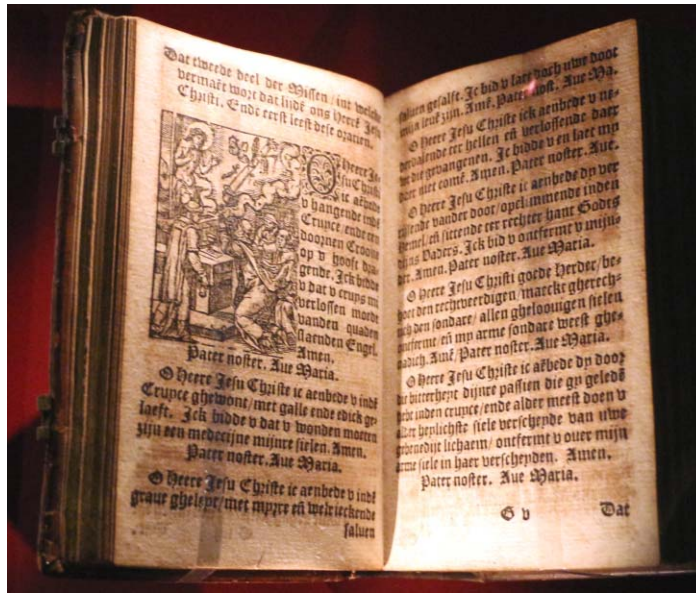 Dat tweede deel der Missen / int welcke
vermaēt wort dat lijdē ons Heerē Jesu
Christi. Ende eerst leest dese oratien.
O Heere Je-
su Christi
ic aēbede
v hangende indē
Cruyce / ende een
doornen Croone
op v hooft dra-
gende. Ick bidde
v dat v cruys mi
verlossen moete
vanden quaden
slaenden Engel.
Amen.
Pater noster. Aue Maria.
O Heere Jesu Christe ic aenbede v indē
Cruyce ghewont / met galle ende edick ge-
laeft. Ick bidde v dat v wonden moeten
zijn een medecijne mijnre sielen. Amen.
Pater noster. Aue Maria.
O Heere Jesu Christe ic aenbede v indē
graue gheleyt / met myrre eñ welrieckende
saluen
saluen gesalft. Ic bid v laet doch uwe doot
mijn leuē zijn. Amē. Pater nost. Aue Ma.
O Heere Jesu Christe ick aenbede v ne-
derdalende ter hellen eñ verlossende daer
wt die gevangenen. Ic bidde v en laet my
daer niet comē. Amen. Pater noster. Aue.
O Heere Jesu Christe ic aenbede dy ver
rijsende vander doot / opclimmende inden
Hemel / eñ sittende ter rechter hant Godts
dijns Vaders. Ick bid v ontfermt v mijn-
der. Amen. Pater noster. Aue Maria.
O Heere Jesu Christi goede Herder / be-
hoet den rechtveerdigen / maeckt gherech-
tich den sondare / allen gheloouigen sielen
ontferme eñ my arme sondare weest ghe-
nadich. Amē / Pater noster. Aue Maria.
O Heere Jesu Christe ic aēbede dy door
die bitterheyt dijnre passien die gy geledē
hebt inden cruyce / ende alder meest doen v
alder heylichste siele verscheyde van uwe
gebenedijt lichaem / ontfermt v ouer mijn
arme siele in haer verscheyden. Amen.
Pater noster. Aue Maria.
G v Dat